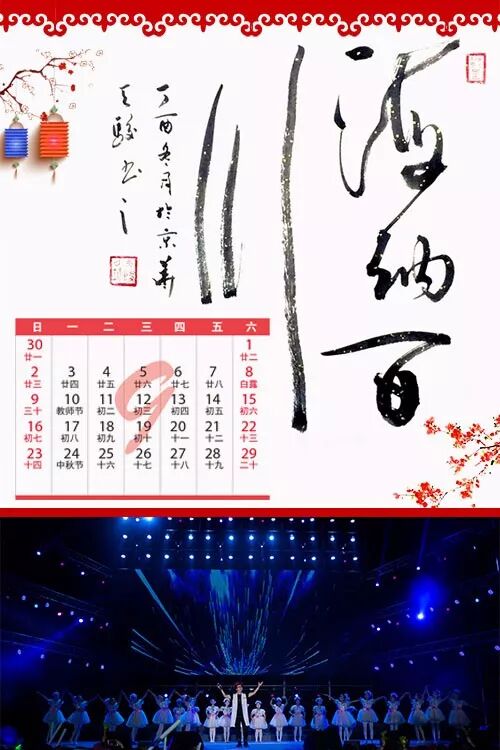 海纳百
川
丁酉冬月於京華
王骏书
日 一 二 三 四 五 六
30 1
廿一 廿二
2 3 4 5 6 7 8
廿三 廿四 廿五 廿六 廿七 廿八 白露
9 10 11 12 13 14 15
三十 教师节 初二 初三 初四 初五 初六
16 17 18 19 20 21 22
初七 初八 初九 初十 十一 十二 十三
23 24 25 26 27 28 29
十四 中秋节 十六 十七 十八 十九 二十
9